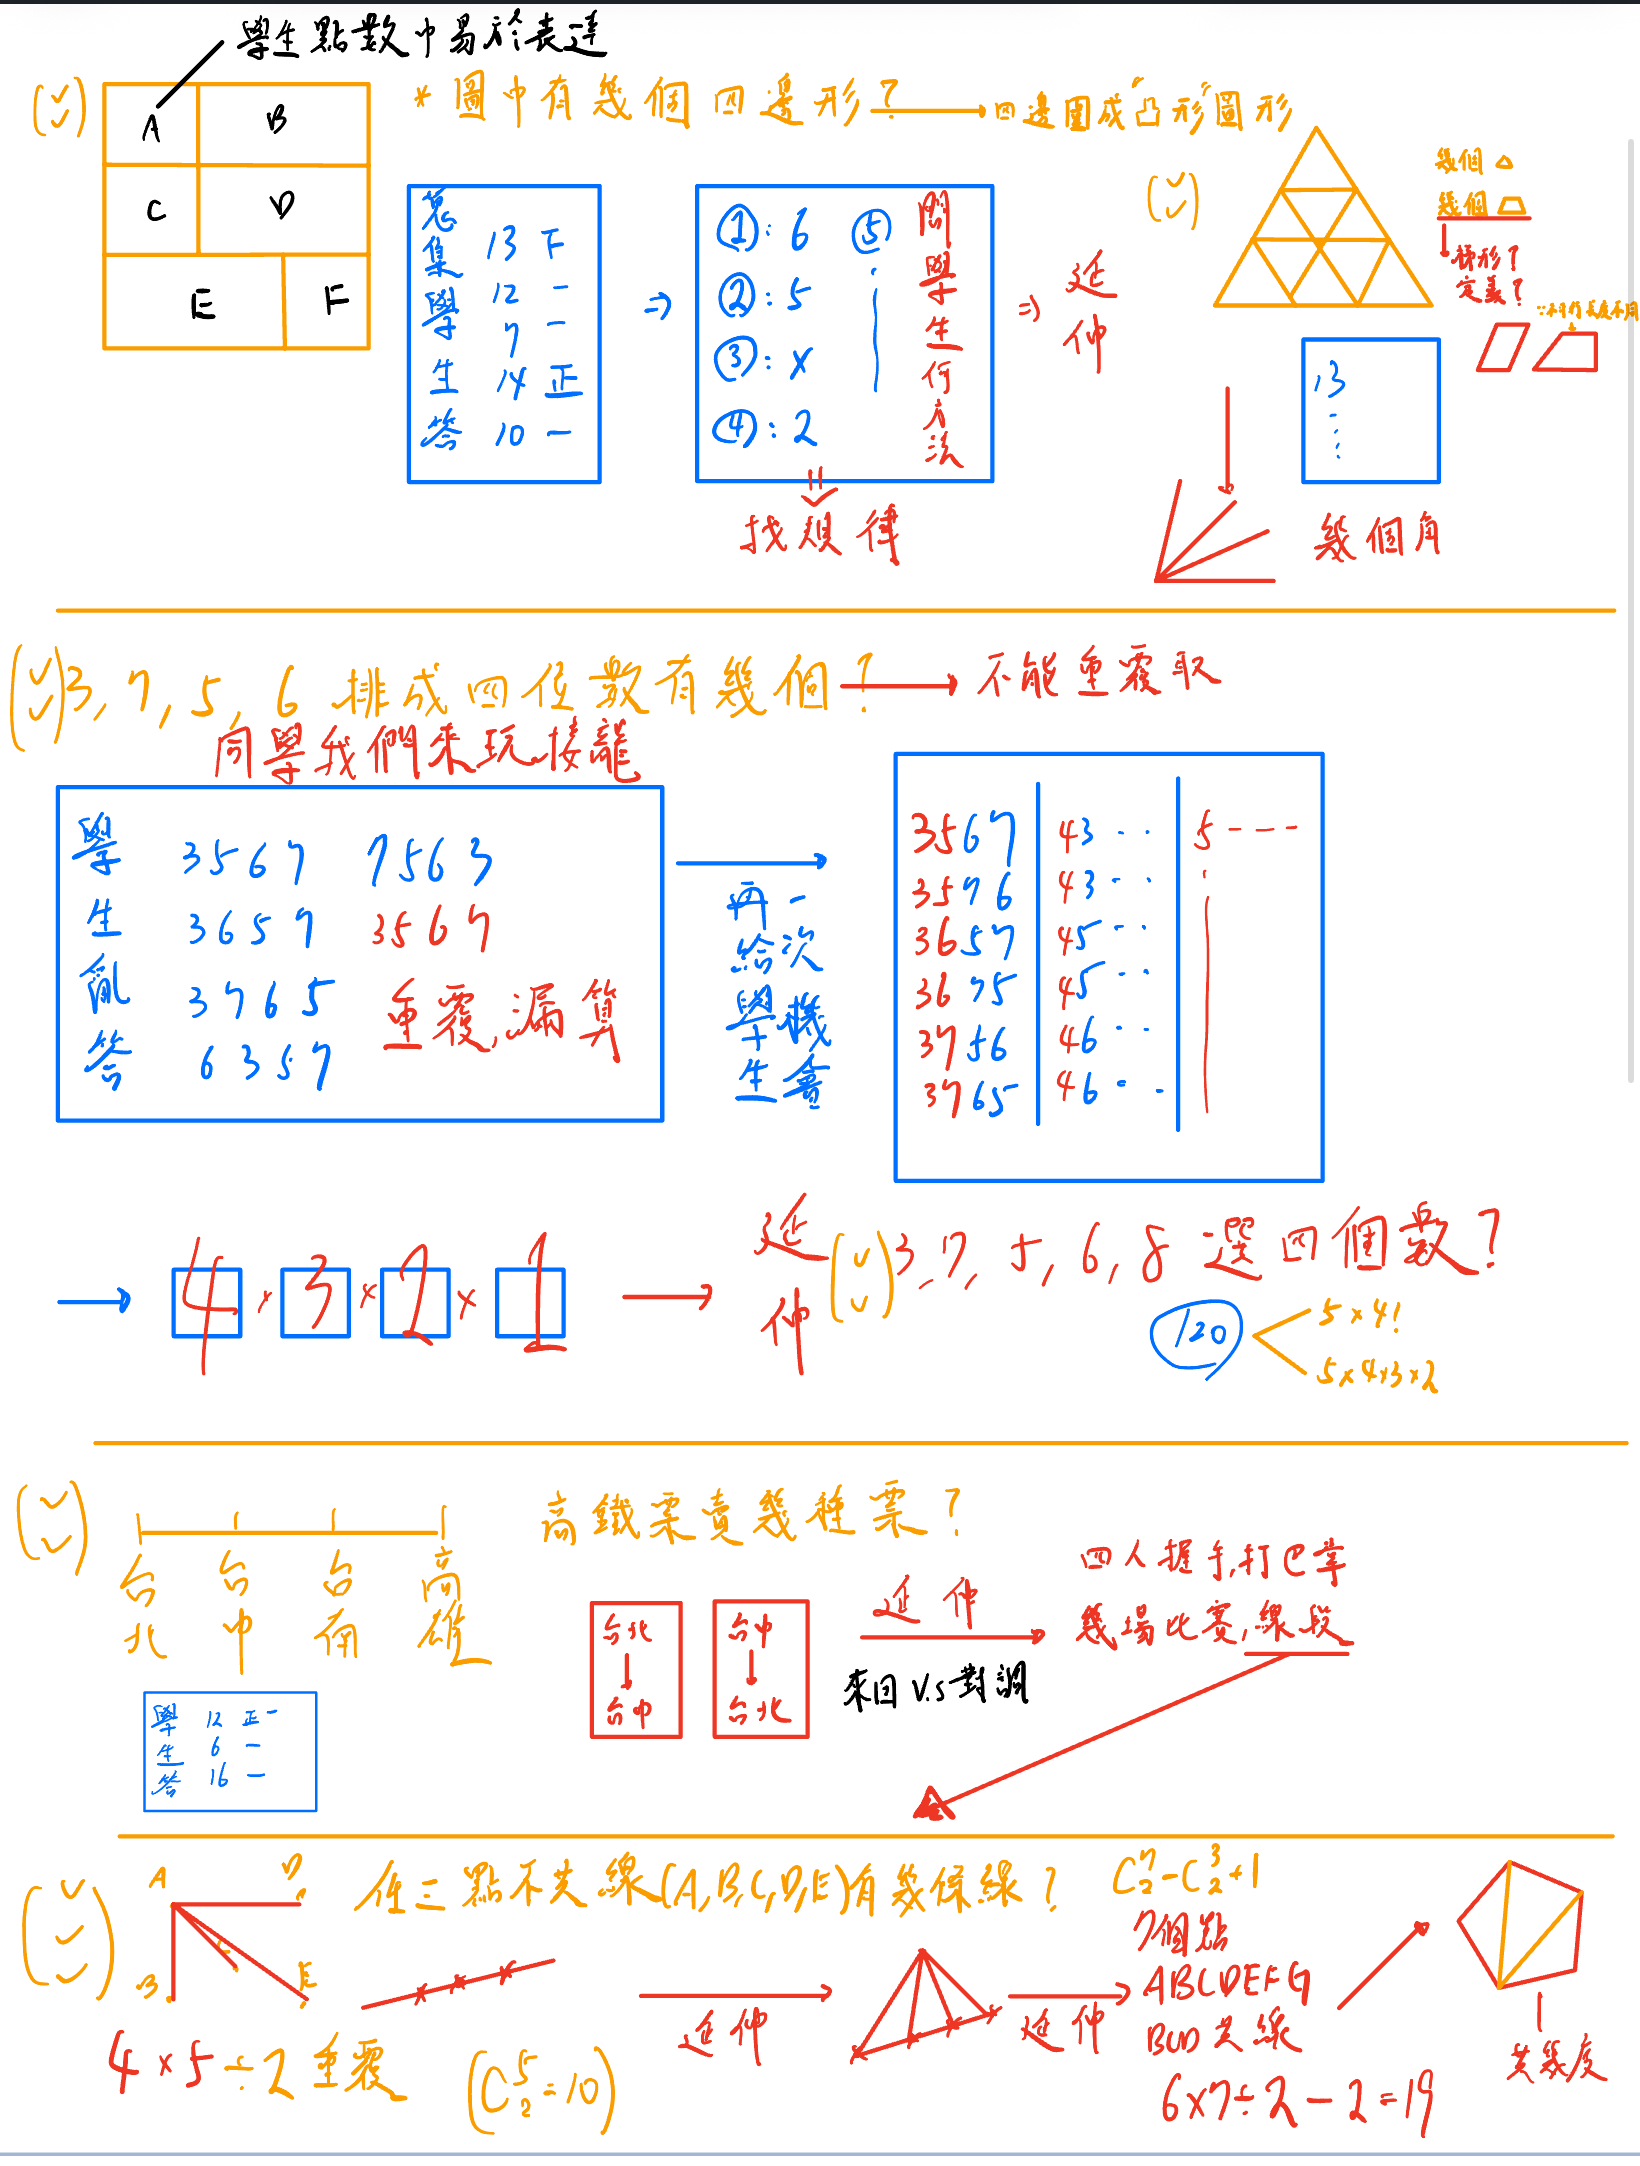 學生點數中易於表達
A B
C D
E F
*圖中有幾個四邊形?
四邊圍成"凸形"圖形
蒐集學生答
13 下
12 一
7 一
14 正
10 一
⇒
①: 6
②: 5
③: x
④: 2
⑤
問學生何方法
找規律
⇒ 延伸
幾個△
幾個
梯形?
定義?
∵不平行長度不同
13
幾個角
3, 7, 5, 6 排成四位數有幾個?
不能重覆取
同學我們來玩接龍
學生亂答
3567 7563
3657 3567
3765
6357
重覆,漏算
再給學生
一次機會
3567 43‥ 5----
3576 43‥
3657 45‥
3675 45‥
3756 46‥
3765 46‥
4 × 3 × 2 × 1
延伸
3, 7, 5, 6, 8 選四個數?
120
5×4!
5×4×3×2
台北
台中
台南
高雄
高鐵票賣幾種票?
學生答
12 正一
6 一
16 一
台北
↓
台中
台中
↓
台北
延伸
來回 V.S 對調
四人握手,打巴掌
幾場比賽,線段
A D
B C E
任三點不共線(A,B,C,D,E)有幾條線?
4×5÷2 重覆
(C⁵₂=10)
延伸
延伸
C⁷₂-C³₂+1
7個點
ABCDEFG
BCD共線
6×7÷2-2=19
共幾度